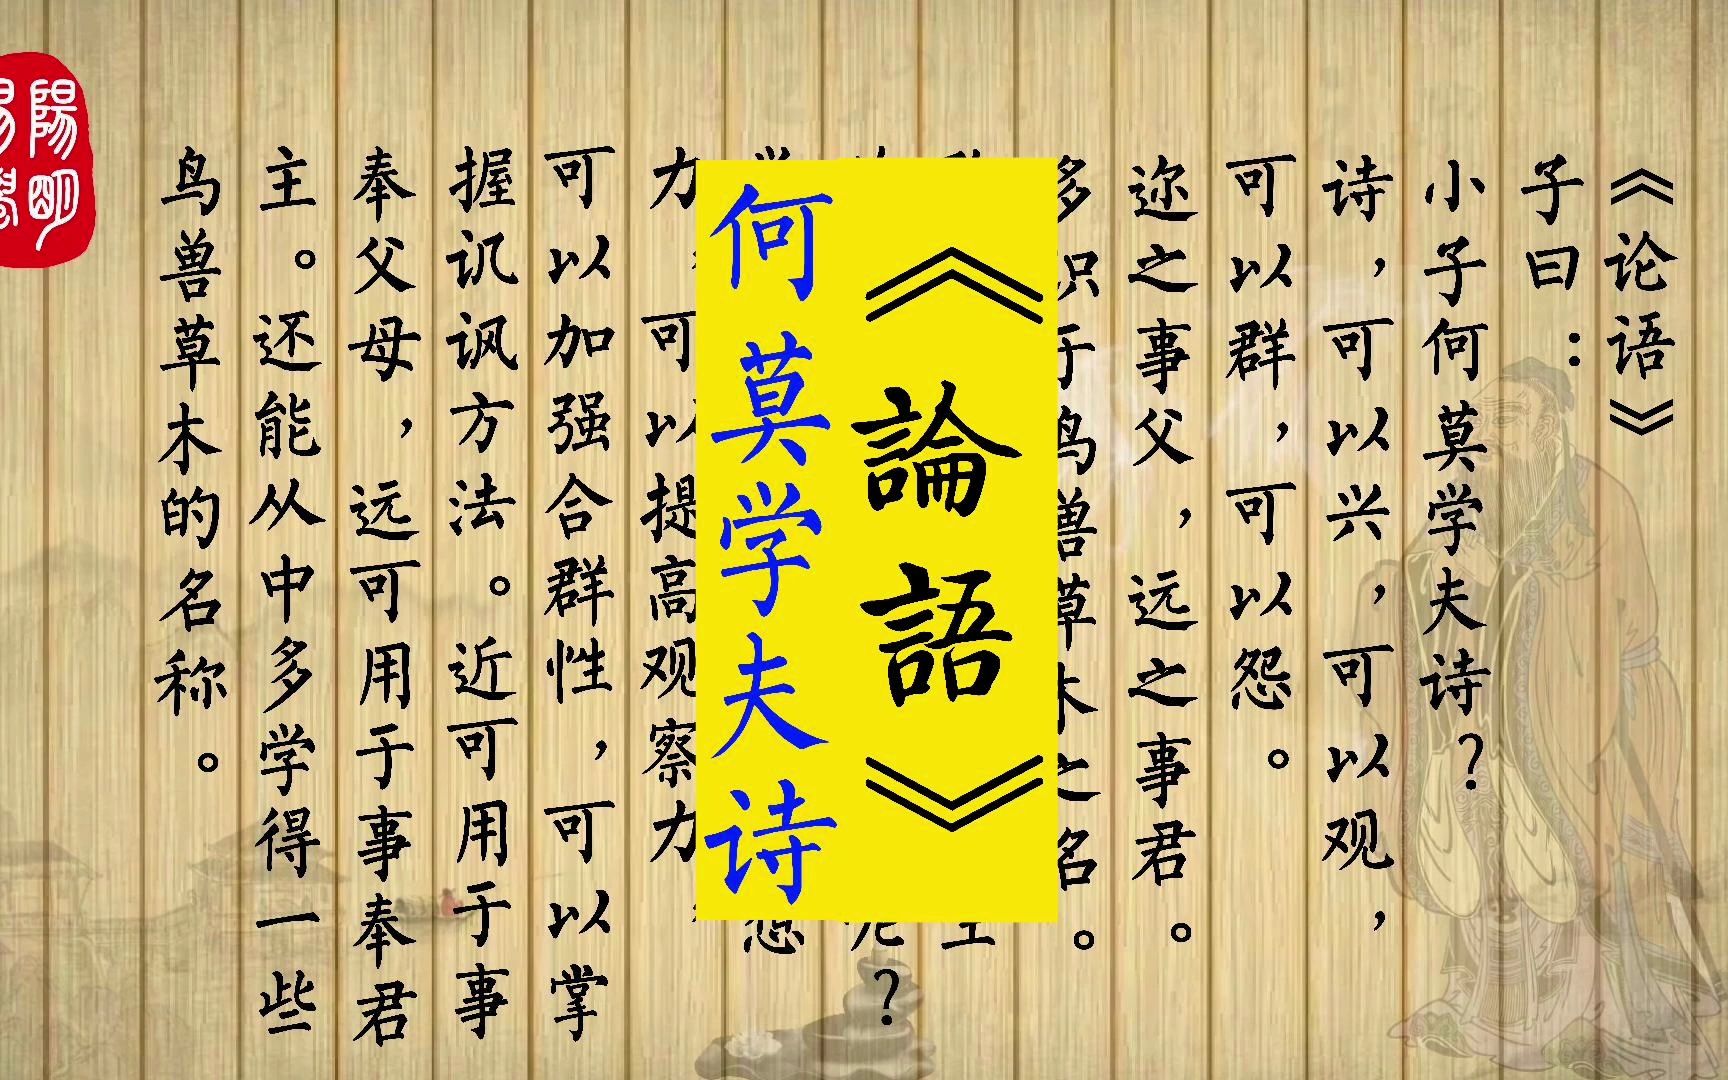 《论语》
子曰：
小子何莫学夫诗？
诗，可以兴，可以观，
可以群，可以怨。
迩之事父，远之事君。
多识于鸟兽草木之名。
？
《論語》
何莫学夫诗
力，可以提高观察力，
可以加强合群性，可以掌
握讥讽方法。近可用于事
奉父母，远可用于事奉君
主。还能从中多学得一些
鸟兽草木的名称。
陽明